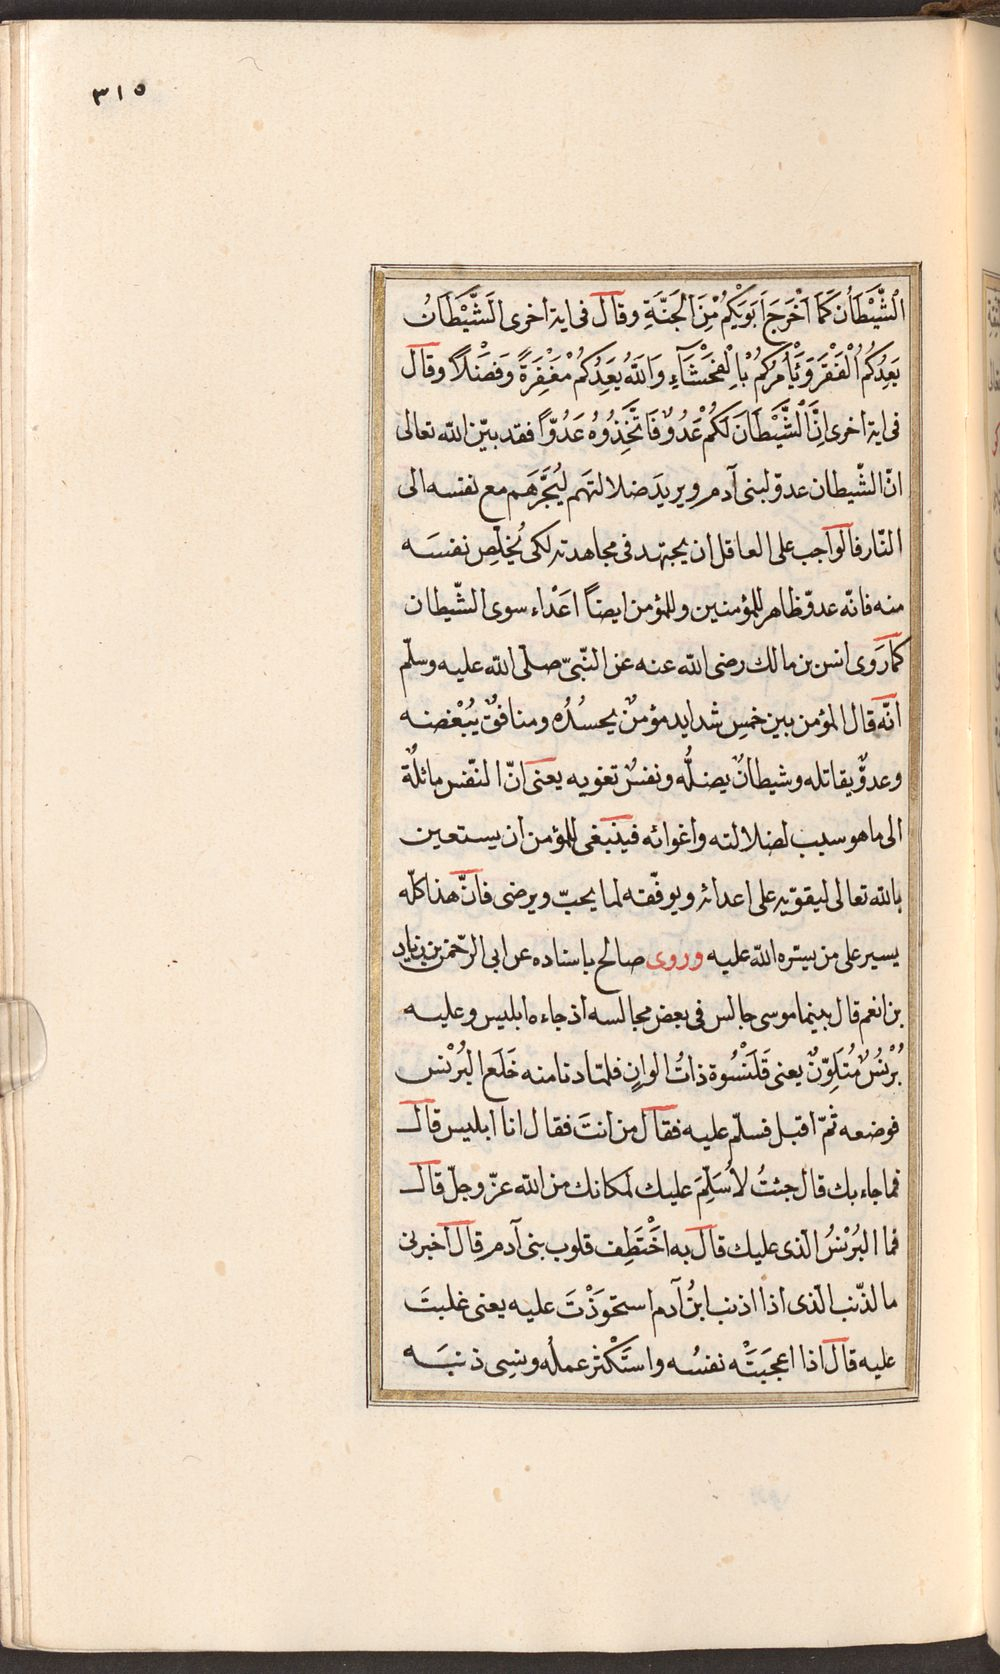 ٣١٥
الشَّيْطَانُ كَمَا اَخْرَجَ اَبَوَيْكُمْ مِنَ الْجَنَّةِ وقال فى اية اخرى اَلشَّيْطَانُ
يَعِدُكُمُ الْفَقْرَ وَيَأْمُرُكُمْ بِالْفَحْشَآءِ وَاللّٰهُ يَعِدُكُمْ مَغْفِرَةً وَفَضْلاً وقال
فى اية اخرى اِنَّ الشَّيْطَانَ لَكُمْ عَدُوٌّ فَاتَّخِذُوهُ عَدُوًّا فقد بيّن اللّه تعالى
انّ الشّيطان عدوّ لبنى آدم ويريدَ ضلالتهم ليُجَرَّهَم مع نفسه الى
النّار فالواجب على العاقل ان يجتهد فى مجاهدته لكى يُخلِص نفسَه
منه فانّه عدوّ ظاهر للمؤمنين وللمؤمن ايضاً اعْداء سوى الشّيطان
كما رَوى انس بن مالك رضى اللّه عنه عن النّبىّ صلّى اللّه عليه وسلّم
انّه قال المؤمن بين خمس شدايد مؤمنٌ يحسُدُه ومنافقٌ يُبْغضه
وعدوٌّ يقاتله وشيطانٌ يضلُّه ونفسٌ تغويه يعنى انّ النّفس مائلةٌ
الى ما هو سبب لضلالته واغوائه فينبغى للمؤمن ان يستعين
باللّه تعالى ليقوّيه على اعدائه ويوفّقه لما يحبّ ويرضى فانّ هذا كلّه
يسير على من يسّره اللّه عليه وروى صالح باسناده عن ابى الرّحمن بن زياد
بن انعم قال بينما موسى جالس فى بعض مجالسه اذ جاءه ابليس وعليه
بُرْنُسٌ مُتَلَوِّنٌ يعنى قَلَنْسُوة ذاتُ الوانٍ فلمّا دنا منه خَلَعَ البُرْنس
فوضعه ثمّ اقبل فسلّم عليه فقال من انتَ فقال انا ابليس قال
فما جاء بك قال جئتُ لأُسَلِّمَ عليك لمكانك من اللّه عزّ وجلّ قال
فما البُرْنسُ الّذى عليك قال به اَخْتَطِف قلوب بنى آدم قال اخبرنى
ما لذّنب الّذى اذا اذنب ابنُ آدم استحوَذْتَ عليه يعنى غلبتَ
عليه قال اذا اعجَبَتْه نفسُه واستَكْثر عملُه ونسِى ذنبَه